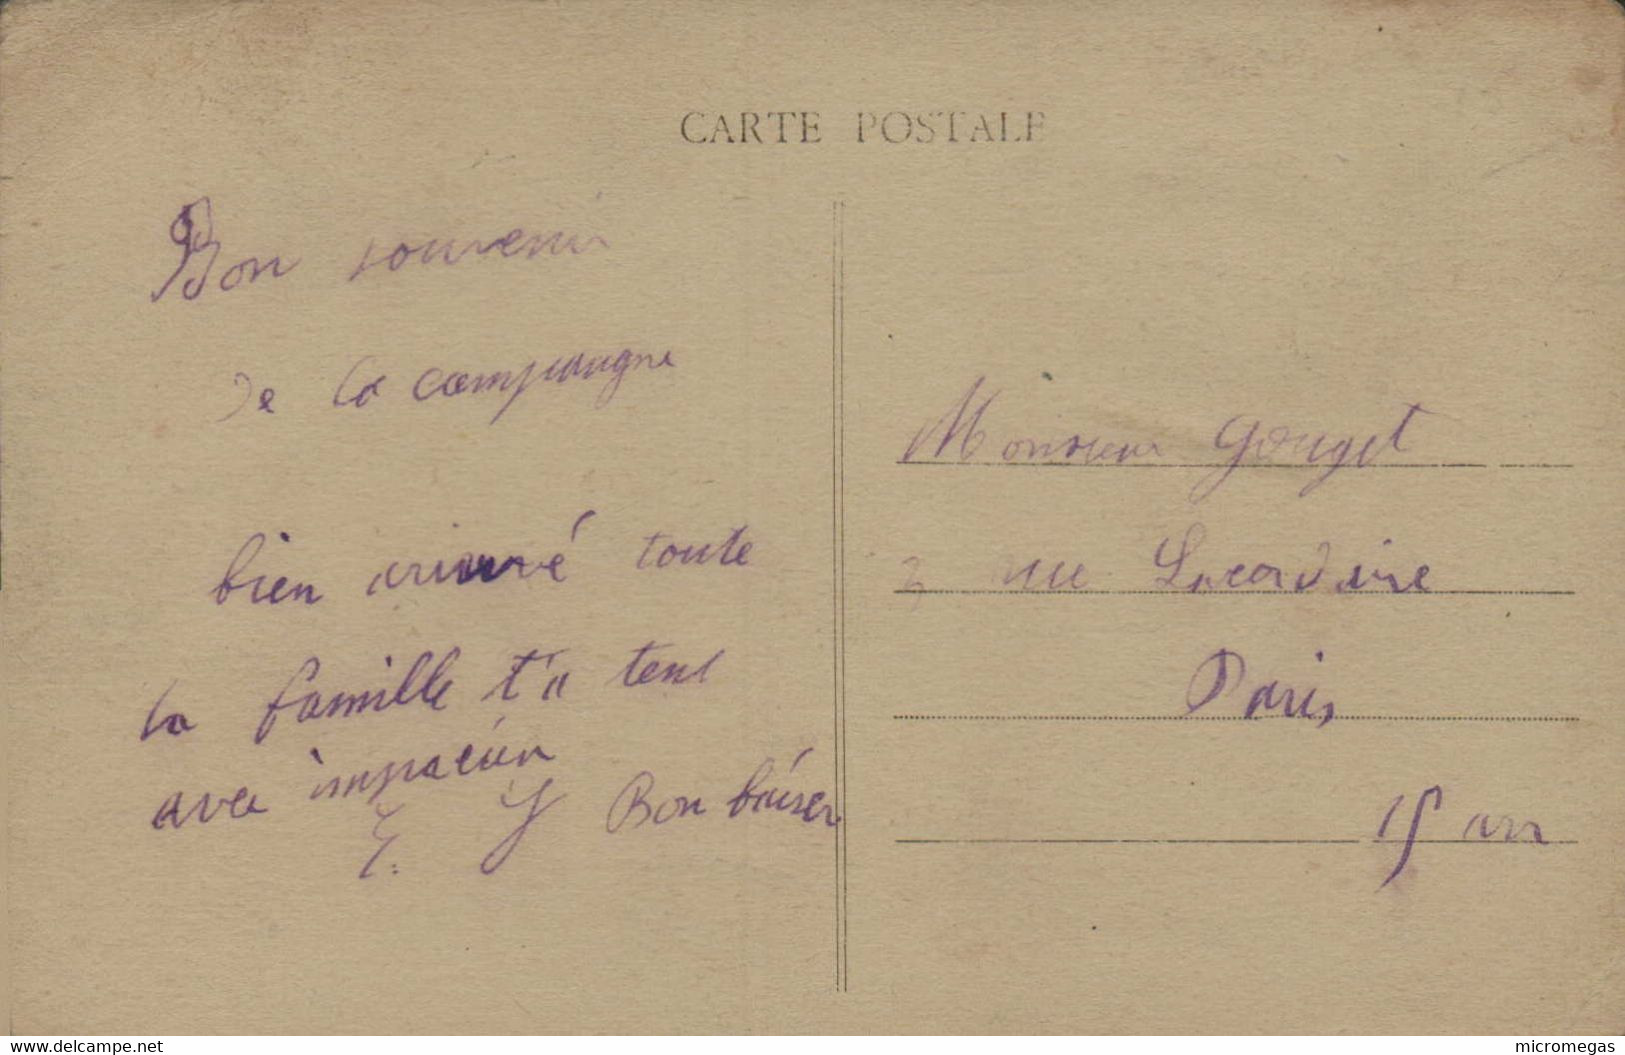 CARTE POSTALE
Bon souvenir
de la campaugne
bien arrivré toute
la famille t'a tent
avec impaciin
Bon baiser
Monsieur Gouget
3 rue Lacordaire
Paris
15 arr
www.delcampe.net
micromegas